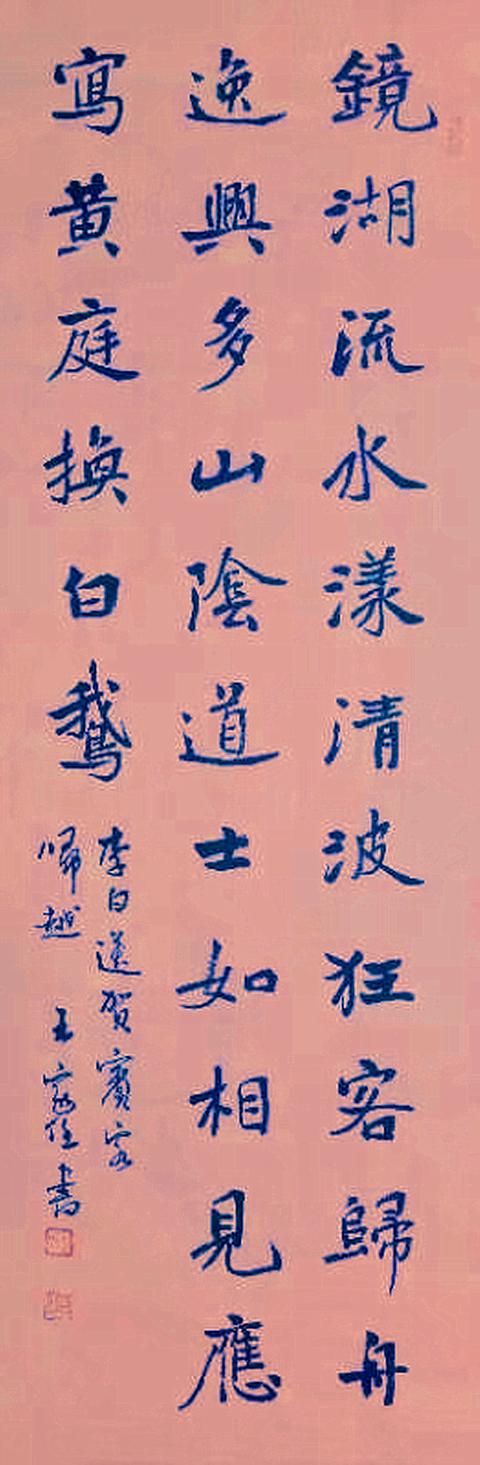 鏡湖流水漾清波狂客歸舟
逸興多山陰道士如相見應
寫黃庭換白鵝
李白送賀賓客
歸越 王
書